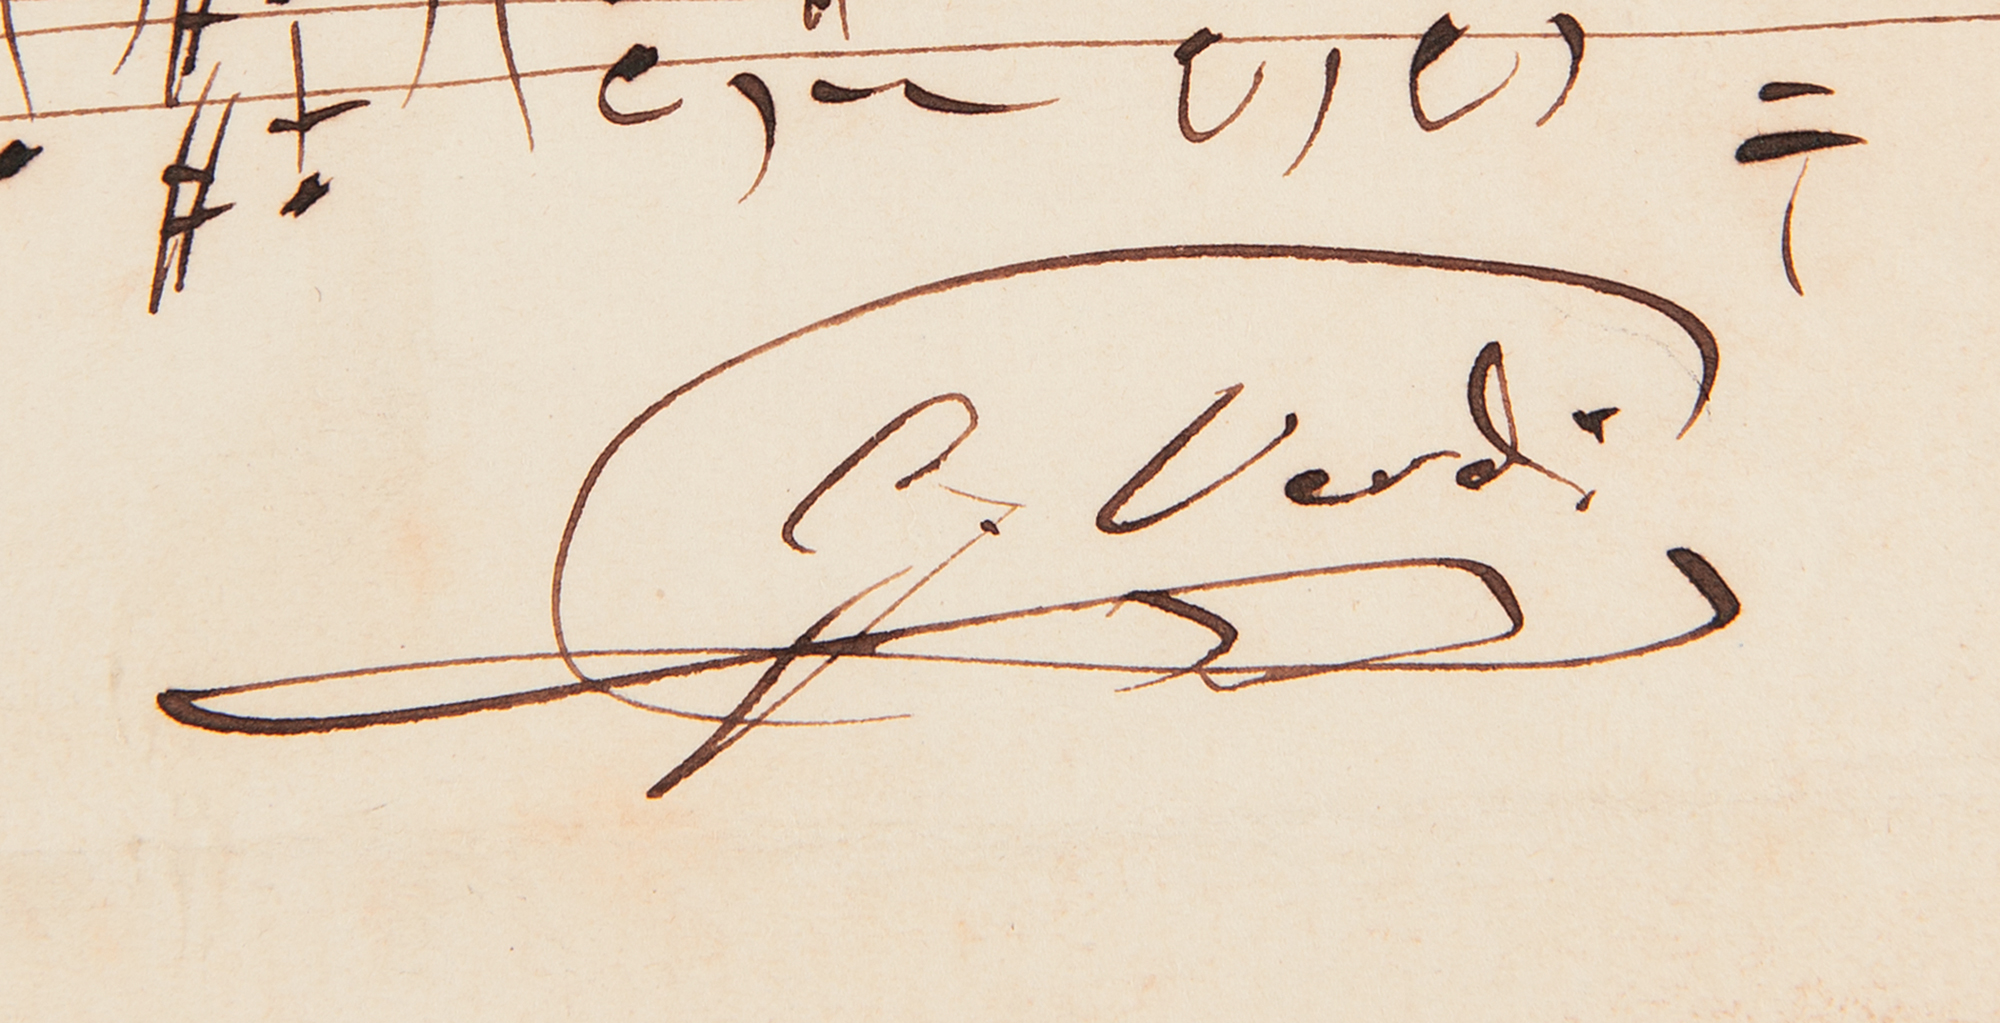 G. Verdi